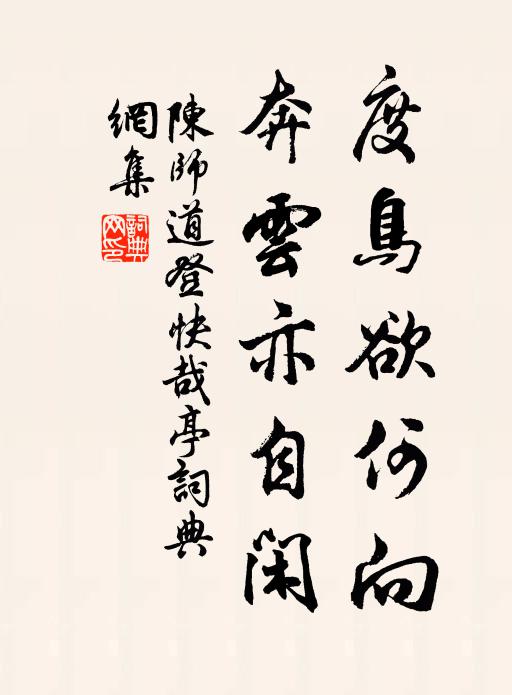 度鳥欲何向
奔雲亦自閑
陳師道登快哉亭詞典
網集
詞典
网印